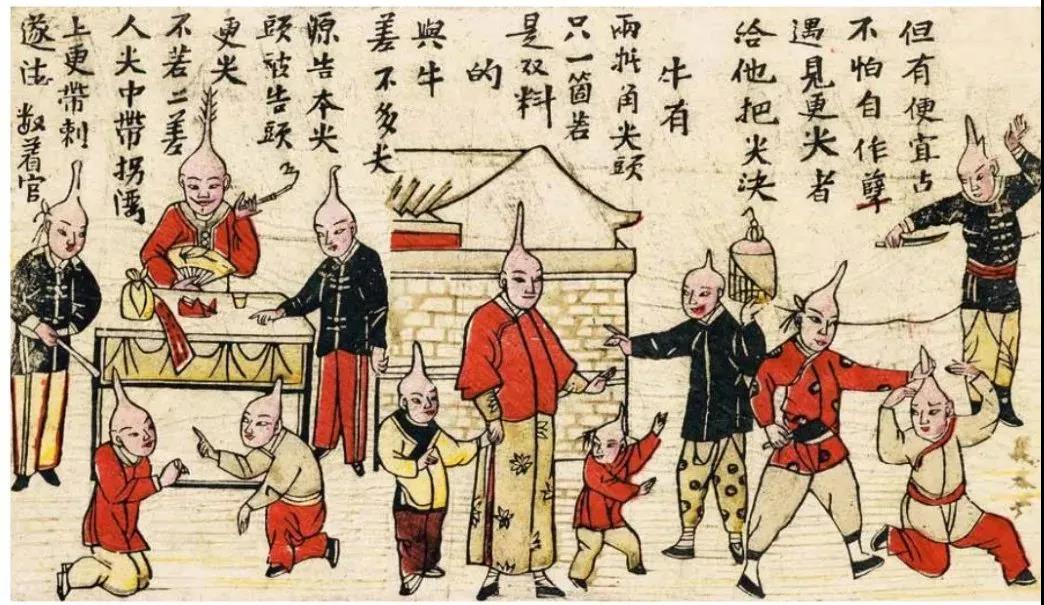 但有便宜占
不怕自作孽
遇見更尖者
給他把尖決
牛有
兩抵角尖頭
只一箇若
是双料
的
與牛
差不多尖
源告本尖
頭被告頭
更尖
不若二差
人尖中帶拐湾
上更帶刺
遂法数着官